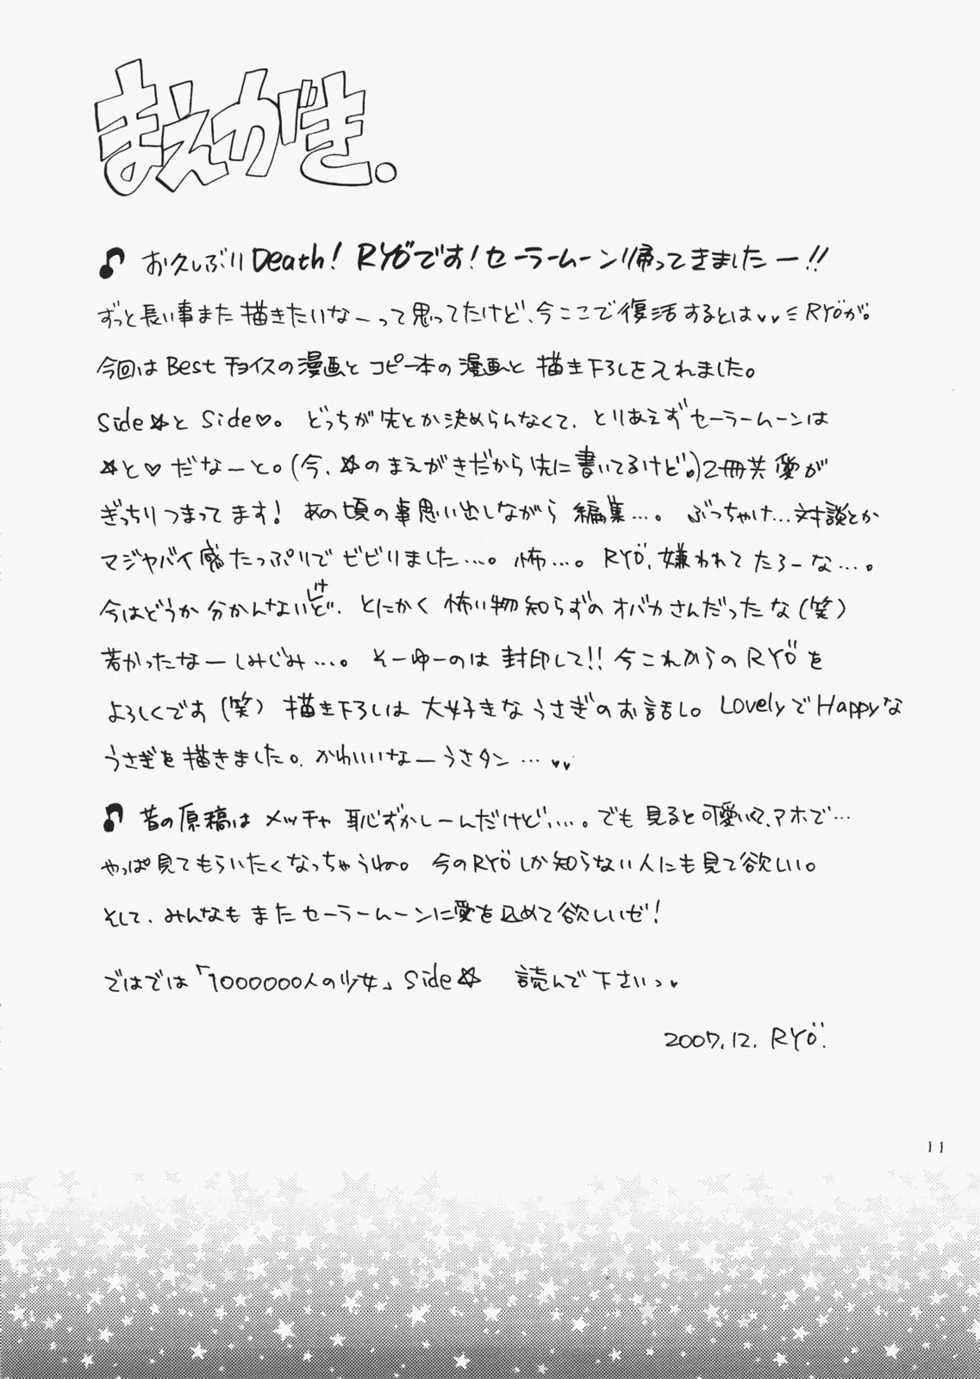 まえがき。
♪ お久しぶりDeath! RYÖです!セーラームーン帰ってきましたー!!
ずっと長い事また描きたいなーって思ってたけど、今ここで復活するとは♥♥ミRYÖが。
今回はBestチョイスの漫画とコピー本の漫画と描き下ろしを入れました。
Side☆とSide♡。どっちが先とか決めらんなくて、とりあえずセーラームーンは
☆と♡だなーと。(今、☆のまえがきだから先に書いてるけど。)2冊共愛が
ぎっちりつまってます!あの頃の事思い出しながら編集…。ぶっちゃけ…対談とか
マジヤバイ感たっぷりでビビりました…。怖…。RYÖ、嫌われてたろーな…。
今はどうか分かんないけど、とにかく怖い物知らずのオバカさんだったな(笑)
若かったなーしみじみ…。そーゆーのは封印して!!今これからのRYÖを
よろしくです(笑)描き下ろしは大好きなうさぎのお話し。LovelyでHappyな
うさぎを描きました。かわいいなーうさタン…♥♥
♪ 昔の原稿はメッチャ恥ずかしーんだけど、…。でも見ると可愛いくて、アホで…
やっぱ見てもらいたくなっちゃうね。今のRYÖしか知らない人にも見て欲しい。
そして、みんなもまたセーラームーンに愛を込めて欲しいゼ!
ではでは「1000000人の少女」Side☆ 読んで下さいっ♥
2007.12. RYÖ.
11